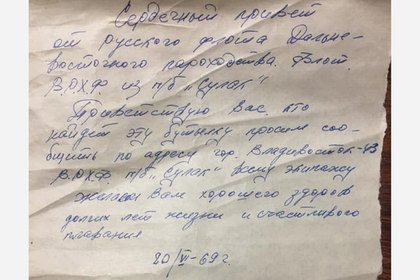 Сердечный привет
от русского флота Дальне-
восточного пароходства.
В.Р.Х.Ф. из п/б "Сулак"
Приветствую Вас кто
найдет эту бутылку просим соо-
бщить по адресу гор. Владивосток-
В.Р.Х.Ф. п/б "Сулак" всему экипажу
желаем Вам хорошего здоров
долгих лет жизни и счастливого
плавания
20/VI-69 г.